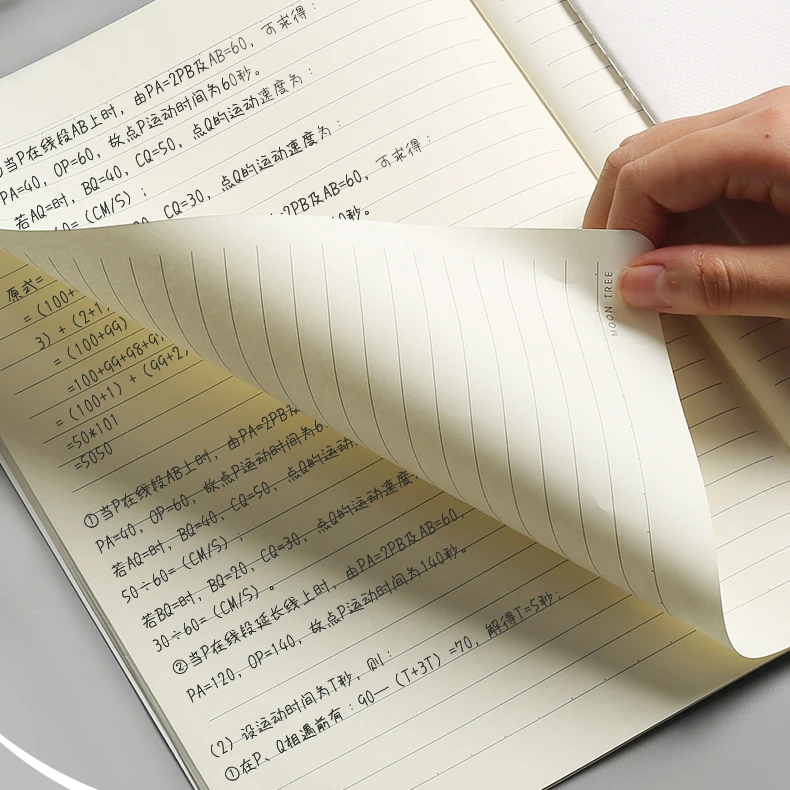 当P在线段AB上时，由PA=2PB及AB=60，可求得：
PA=40，OP=60，故点P运动时间为60秒。
若AQ=时，BQ=40，CQ=50，点Q的运动速度为：
=（CM/S）；
CQ=30，点Q的运动速度为：
=2PB及AB=60，可求得：
秒。
原式=
=（100+
3）+（2+1
=（100+99）
=100+99+98+97
=（100+1）+（99+2
=50*101
=5050
①当P在线段AB上时，由PA=2PB
PA=40，OP=60，故点P运动时间为6
若AQ=时，BQ=40，CQ=50，点Q的运动
50÷60=（CM/S）；
若BQ=时，BQ=20，CQ=30，点Q的运动速度
30÷60=（CM/S）。
②当P在线段延长线上时，由PA=2PB及AB=60，
PA=120，OP=140，故点P运动时间为140秒。
（2）设运动时间为T秒，则：
①在P、Q相遇前有：90—（T+3T）=70，解得T=5秒；
MOON TREE